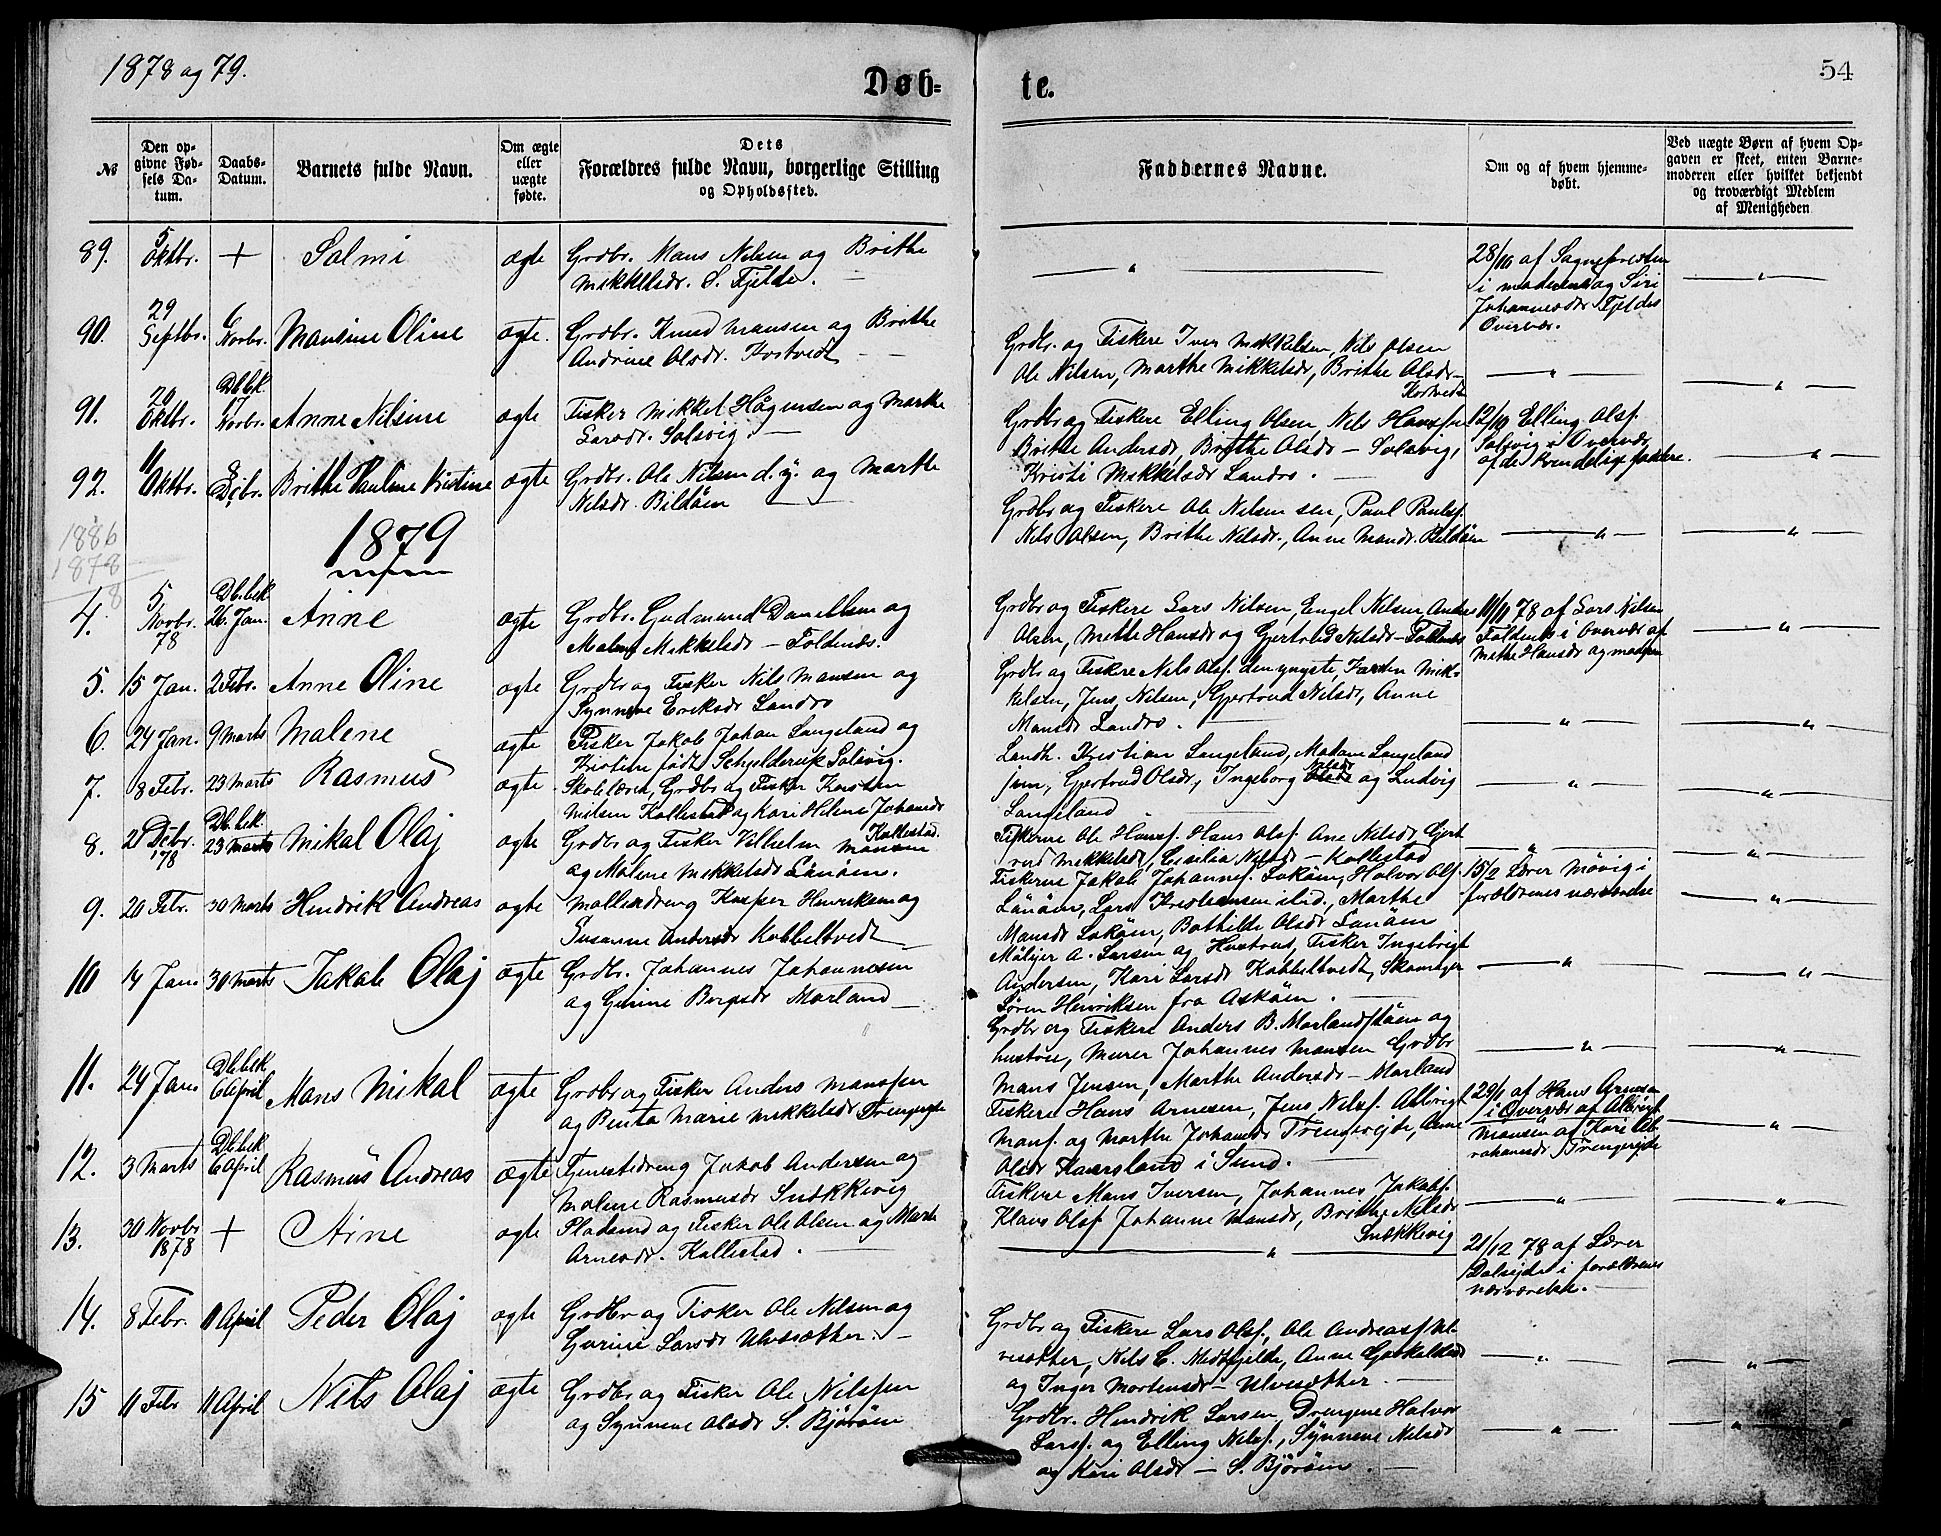 1878 og 79.
Døb-
te.
54
№
Den op-
givne Fød-
sels Da-
tum.
Daabs-
Datum.
Barnets fulde Navn.
Om ægte
eller
uægte
fødte.
Dets
Forældres fulde Navn, borgerlige Stilling
og Opholdssted.
Faddernes Navne.
Om og af hvem hjemme-
døbt.
Ved uægte Børn af hvem Op-
gaven er skeet, enten Barne-
moderen eller hvilket bekjendt
og troværdigt Medlem
af Menigheden
89. 5 Oktbr. + Salmi ægte Grdbr. Mans Nilsen og Brithe
Mikkelsdr. S. Fjelde.
28/10 af Sognepresten
i moderens og Siri
Johannesdr Fjeldes
Overvær.
90. 29 Septbr. 6 Novbr. Mansine Oline ægte. Grdbr. Knud Mansen og Brithe
Andrine Olsdr.
Grdbr. og Fiskere Iver Mikkelsen, Nils Olsen
Ole Nilsen, Marthe Mikkelsdr, Brithe Olsdr
91. 20 Oktbr. Db.bek. 17 Novbr. Anne Nilsine ægte Fisker Mikkel Hågensen og Marthe
Larsdr. Solsvig.
Grdbr og Fiskere Elling Olsen, Nils Hanssen
Brithe Andersdr, Brithe Olsdr - Solsvig,
Kristi Mikkelsdr Landro.
12/10 Elling Olsf.
Solsvig i Overvær
af de kvindelige faddere.
92. 11 Oktbr. 8 Dcbr. Brithe Pauline Kristine ægte Grdbr. Ole Nilsen d.y. og Marthe
Nilsdr. Bildöen
Grdbr og Fiskere Ole Nilsen sen, Paul Paulsf.
Nils Olsen, Brithe Nilsdr., Anne Mansdr. Bildöen
1886
1878
8
1879
4. 5 Novbr. 78 Db.bek. 26. Jan. Anne ægte Grdbr. Gudmund Danielsen og
Malene Mikkelsdr - Foldnæs.
Grdbr og Fiskere Lars Nilsen, Engel Nilsen, Anders
Olsen, Mette Hansdr og Gjertrud Nilsdr - Foldnæs
11/11 78 af Lars Nilsen
Foldnæs i Overvær af
Methe Hansdr og
5. 15 Jan. 2 Febr. Anne Oline ægte Grdbr og Fisker Nils Mansen og
Synneve Eriksdr Landro
Grdbr og Fiskere Nils Olsf. den yngste, Karsten Mik-
kelsen, Jens Nilsen, Gjertrud Nilsdr, Anne
Mansdr Landro.
6. 24 Jan. 9 Marts Malene ægte Fisker Jakob Johan Langeland og
Kristine født Schjelderup Solsvig.
Landh. Kristian Langeland, Madam Langeland
jun, Gjertrud Olsdr, Ingeborg Nilsdr og Ludvig
Langeland
7. 8 Febr. 23 Marts Rasmus ægte Skolelærer, Grdbr og Fisker Karsten
Nilsen Kallestad og Kari Helene Johansdr
Kallestad.
Fiskerne Ole Hansf. Hans Olsf. Ane Nilsdr Gjert
rud Mikkelsdr, Cecilia Nilsdr - Kallestad
8. 21 Dcbr. 178 Db.bek. 23 Marts Mikal Olaj ægte Grdbr og Fisker Vilhelm Mansen
og Malene Mikkelsdr Lönöen.
Fiskerne Jakob Johannesf. Lokøen, Halvor Olsf.
Lönöen, Lars Kristiansen istd., Marthe
Mansdr Lokøen, Bothilde Olsdr Lönöen
15/2 Lærer Møvig i
forældrenes nærværelse
9. 20 Febr. 30 Marts Hendrik Andreas ægte Mølledreng Kasper Henriksen og
Susanne Andersdr Kobbeltvedt
Møller A. Larsen og Hustrue, Fisker Ingebrigt
Andersen, Kari Larsdr Kobbeltvedt, Skomager
Søren Henriksen fra Askøen.
10 14 Jan. 30 Marts Jakob Olaj ægte Grdbr. Johannes Johannesen
og Gurine Børgesdr Morland
Grdbr og Fiskere Anders B. Morland og
hustrue, Murer Johannes Mansen Grdbr
Mans Jensen, Marthe Andersdr - Morland
11. 24 Jan Db.bek 6 April Mans Mikal ægte Grdbr og Fisker Anders Manssen
og Benta Marie Mikkelsdr Trengereide
Fiskere Hans Arnesen, Jens Nilsf. Albrigt
Mansf. og Marthe Johansdr Trengereide, Anne
Olsdr Kaarsland i Sund.
29/1 af Hans Arnesen
i Overvær af Albrigt
Mansen og Kari
Trengereide
12. 3 Marts Db.bek 6 April Rasmus Andreas ægte Tjenestedreng Jakob Andersen og
Malene Rasmusdr Snekkevig
Fiskere Mans Iversen, Johannes Jakobsf.
Klaus Olsf. Johanne Mansdr, Brithe Nilsdr
Snekkevig
13. 30 Novbr 1878 + Arne ægte Pladsmd og Fisker Ole Olsen og Marta
Arnesdr. Kallestad.
21/12 78 af Lærer
Dalseide i forældrenes
nærværelse.
14. 8 Febr. 11 April Peder Olaj ægte Grdbr og Fisker Ole Nilsen og
Gurine Larsdr Ulvesæther.
Grdbr og Fiskere Lars Olsf., Ole Andreasf. Ul-
vesæther, Nils C. Midtfjelde, Anne
og Inger Mortensdr - Ulvesæther.
15 11 Febr 11 April Nils Olaj ægte Grdbr og Fisker Ole Nilssen
og Synneve Olsdr S. Bjøröen
Grdbr. Hendrik Larsen, Drengene Halvor
Larsf. og Elling Nilsf., Synneve Nilsdr
og Kari Olsdr - S. Björöen.